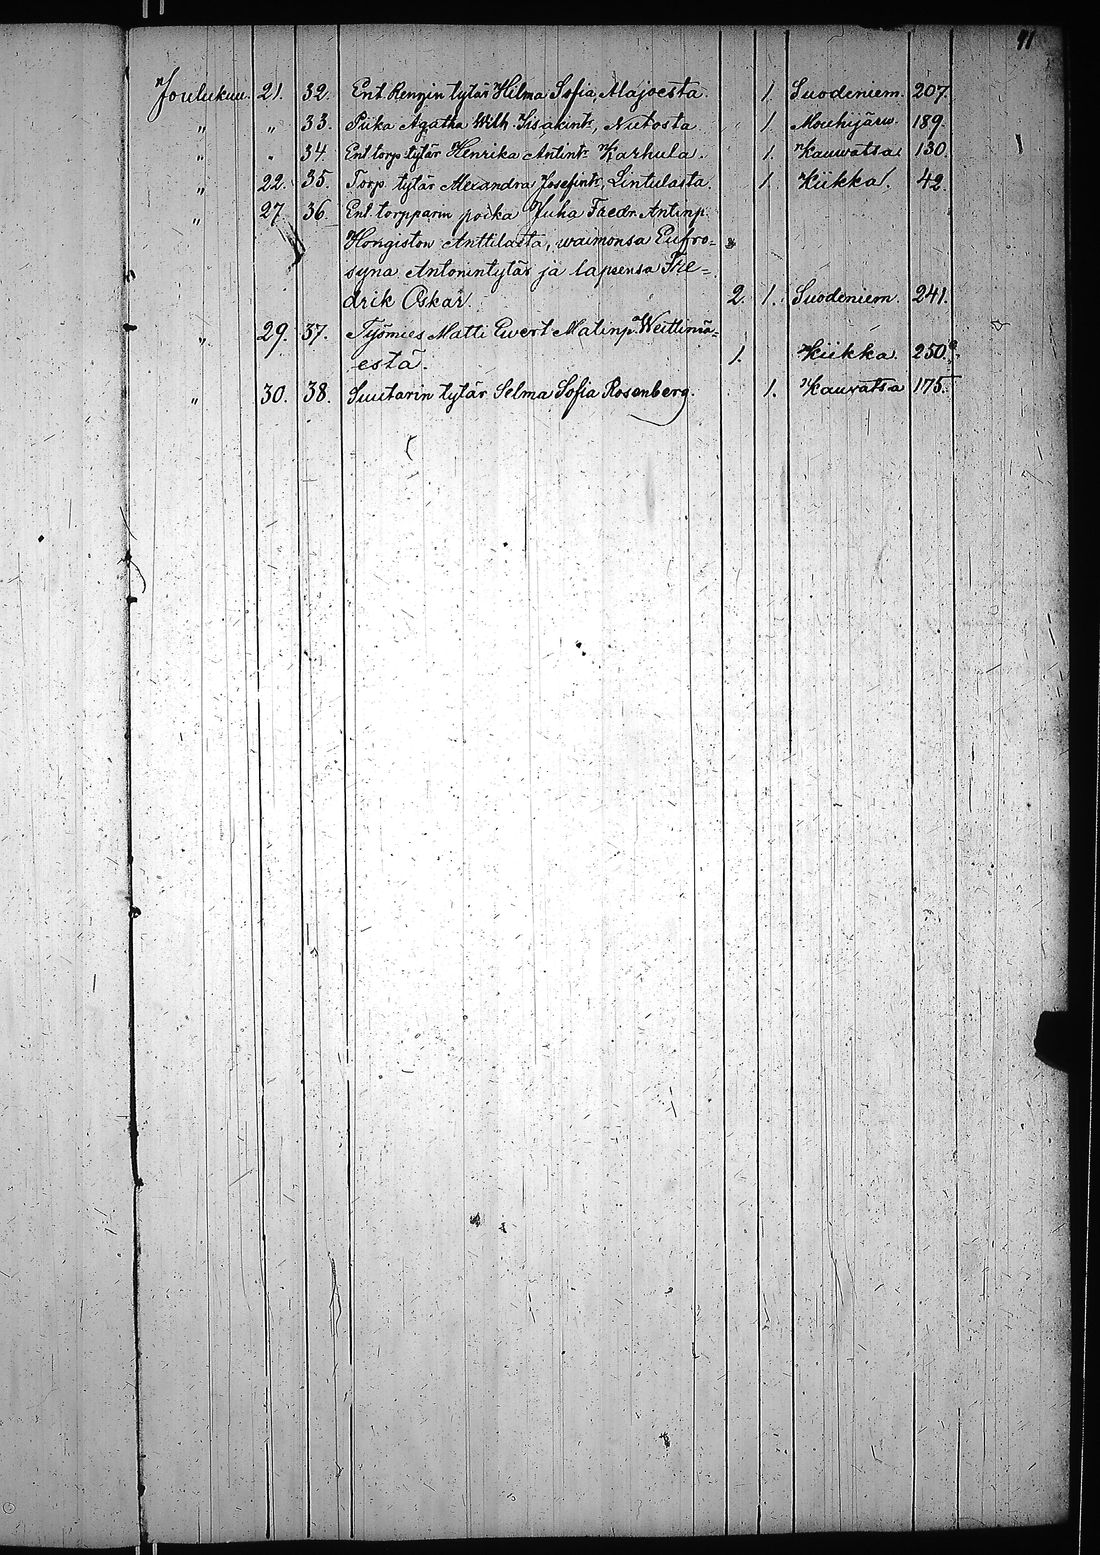 41
Joulukuu. 21. 32. Ent. Rengin tytär Hilma Sofia, Alajoesta. 1. Suodeniem. 207.
" " 33. Piika Agatha Wilh. Iisakintr, Nutosta 1. Mouhijärw. 189.
" " 34. Ent. torp. tytär Henrika Antintr Karhula. 1. Kauwatsa 130.
" 22. 35. Torp. tytär Alexandra Josefintr, Lintulasta. 1. Kiikka. 42.
" 27. 36. Ent. torpparin poika Juha Fredr. Antinp.
Hongiston Anttilasta, waimonsa Eufro=
syna Antonintytär ja lapsensa Fre=
drik Oskar. 2. 1. Suodeniem. 241.
" 29. 37. Työmies Matti Ewert Matinp.
estä. 1. Kiikka. 250.
" 30. 38. Suutarin tytär Selma Sofia Rosenberg. 1. Kauvatsa 175.